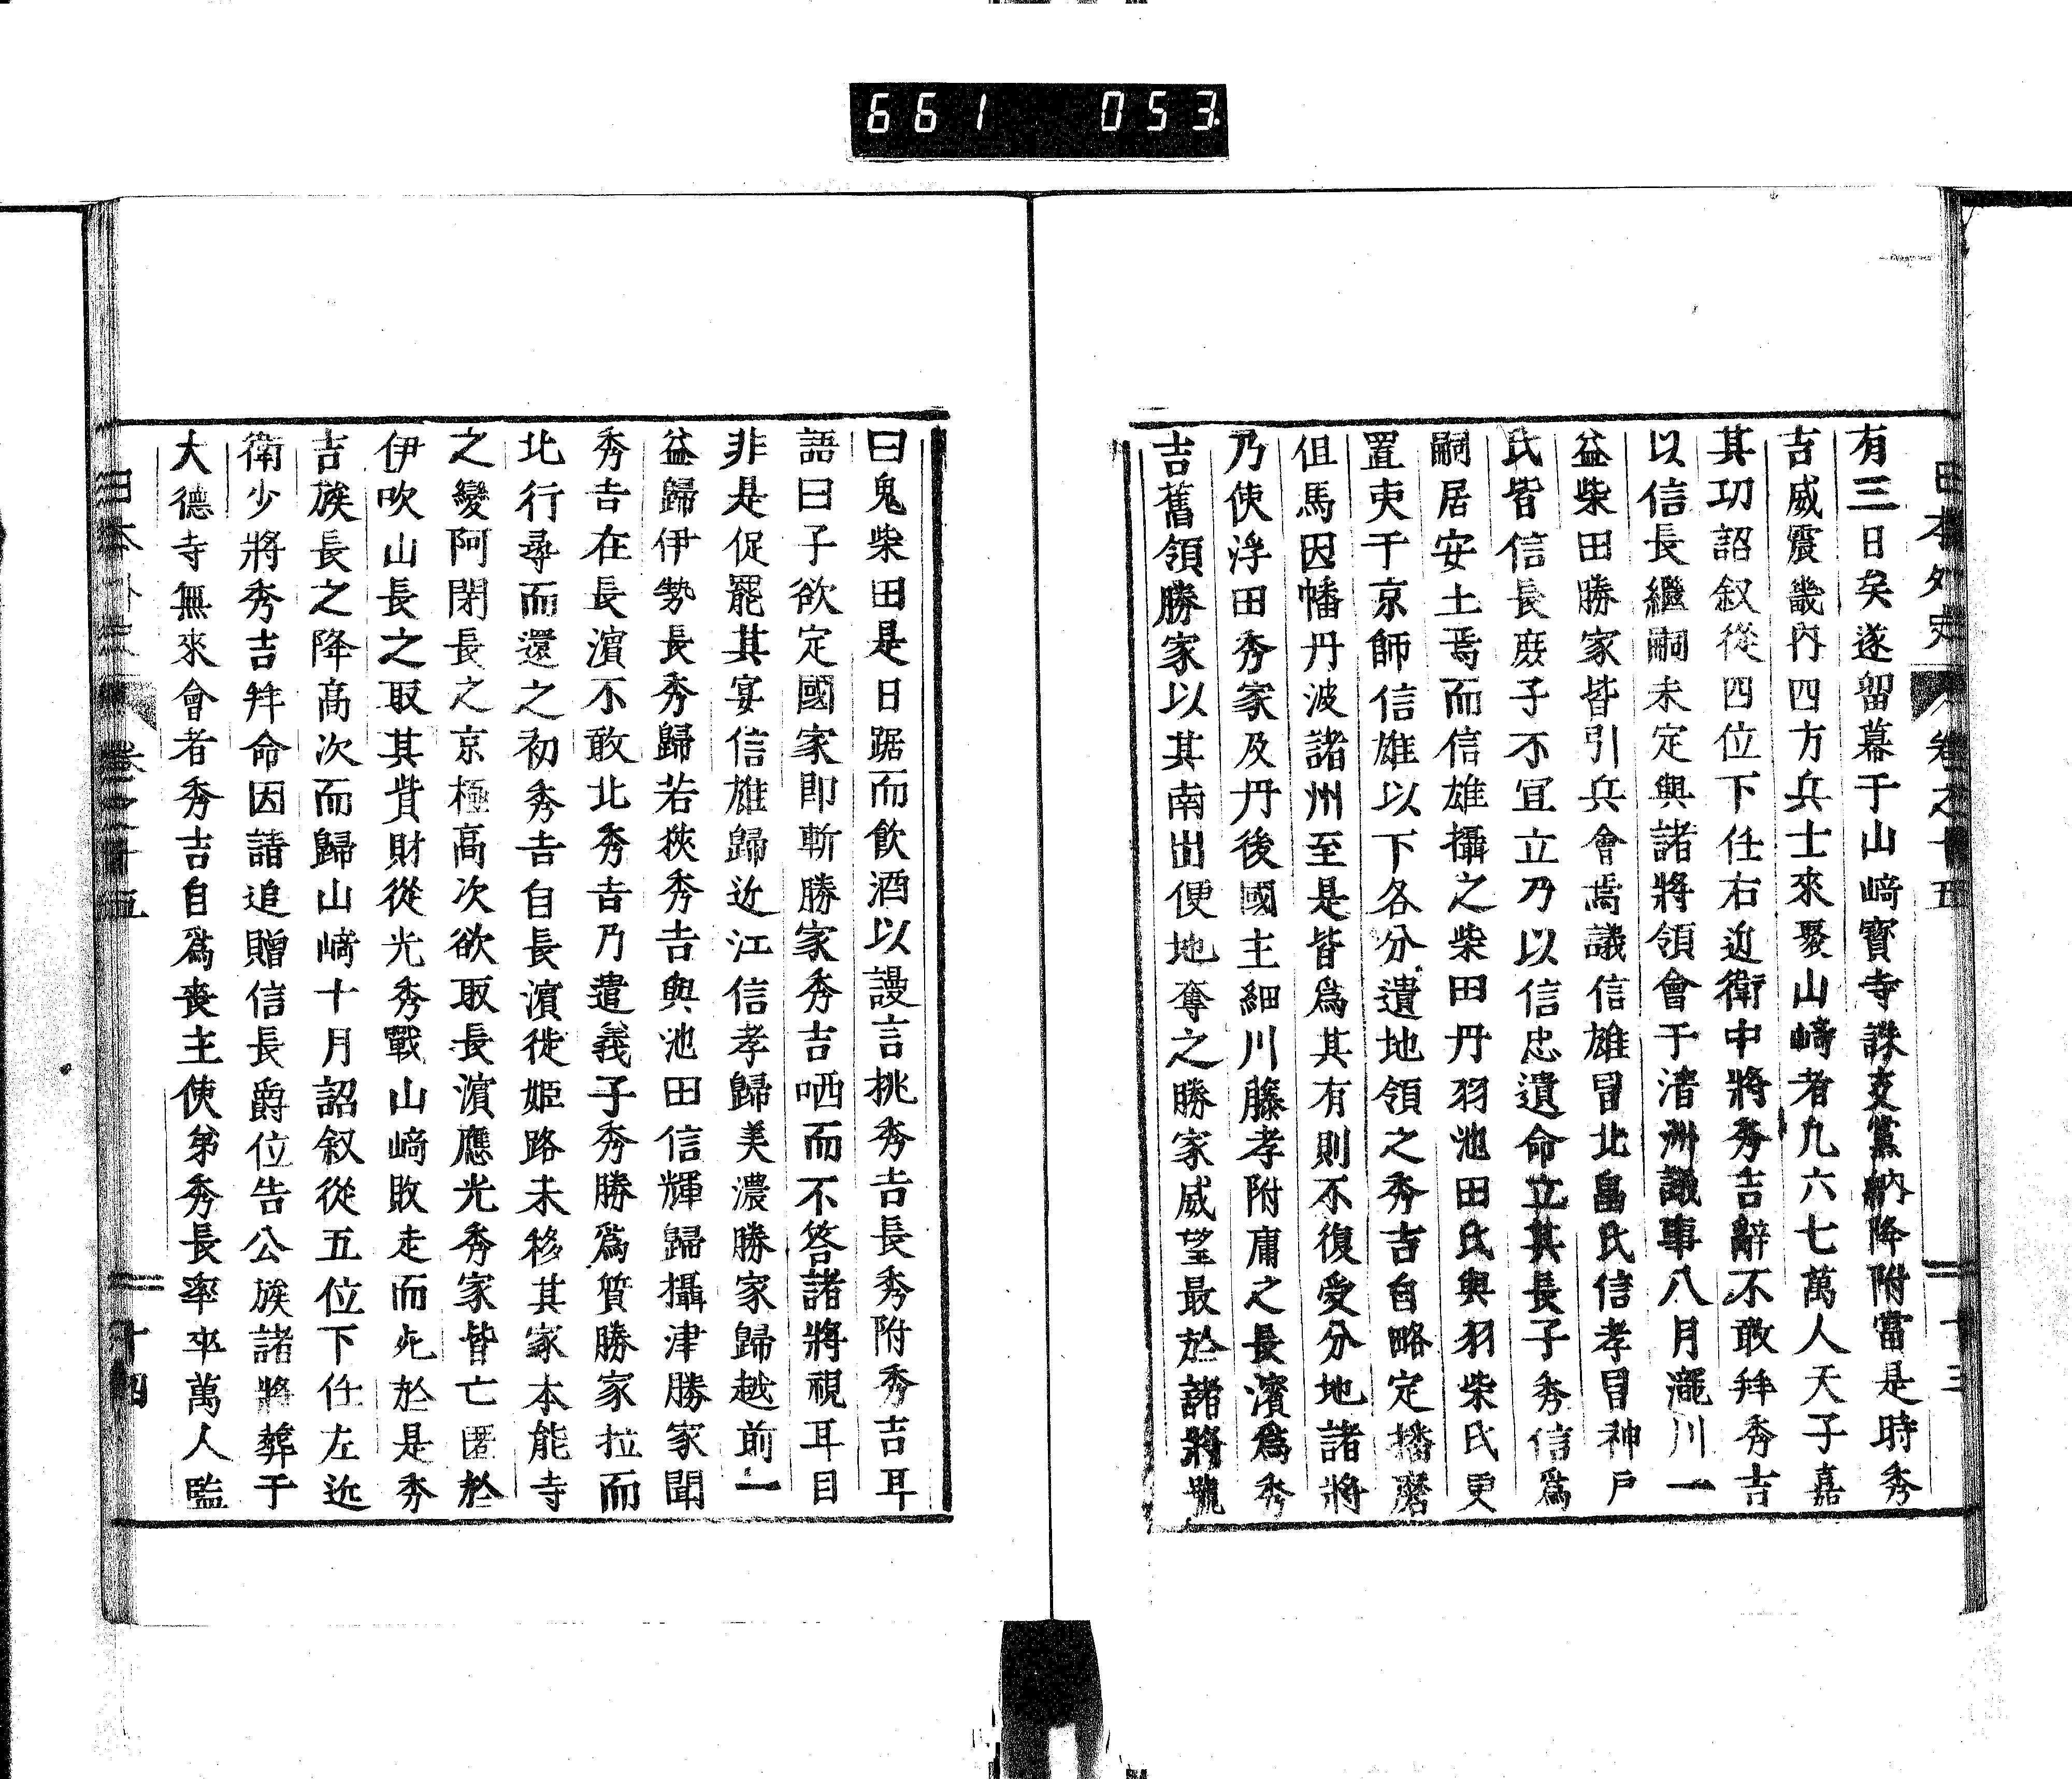 661 053
日本外史 卷之十五 十三
有三日矣遂留幕于山﨑寶寺誅支黨納降附當是時秀
吉威震畿内四方兵士來聚山﨑者九六七萬人天子嘉
其功詔叙從四位下任右近衛中將秀吉辭不敢拜秀吉
以信長繼嗣未定與諸將領會于淸洲議事八月瀧川一
益柴田勝家皆引兵會焉議信雄冒北畠氏信孝冒神戸
氏皆信長庻子不宜立乃以信忠遺命立其長子秀信爲
嗣居安土焉而信雄攝之柴田丹羽池田氏與羽柴氏更
置吏于京師信雄以下各分遺地領之秀吉自略定播磨
但馬因幡丹波諸州至是皆爲其有則不復受分地諸將
乃使浮田秀家及丹後國主細川藤孝附庸之長濱爲秀
吉舊領勝家以其南出便地奪之勝家威望最於諸將號
曰鬼柴田是日踞而飮酒以謾言挑秀吉長秀附秀吉耳
語曰子欲定國家即斬勝家秀吉哂而不答諸將視耳目
非是促罷其宴信雄歸近江信孝歸美濃勝家歸越前一
益歸伊勢長秀歸若狹秀吉與池田信輝歸攝津勝家聞
秀吉在長濱不敢北秀吉乃遣義子秀勝爲質勝家拉而
北行尋而還之初秀吉自長濱徙姫路未移其家本能寺
之變阿閉長之京極高次欲取長濱應光秀家皆亡匿於
伊吹山長之取其貲財從光秀戰山﨑敗走而死於是秀
吉族長之降高次而歸山﨑十月詔叙從五位下任左近
衛少將秀吉拜命因請追贈信長爵位告公族諸將葬于
大德寺無來會者秀吉自爲喪主使弟秀長率卒萬人監
日本外史 卷之十五 十四